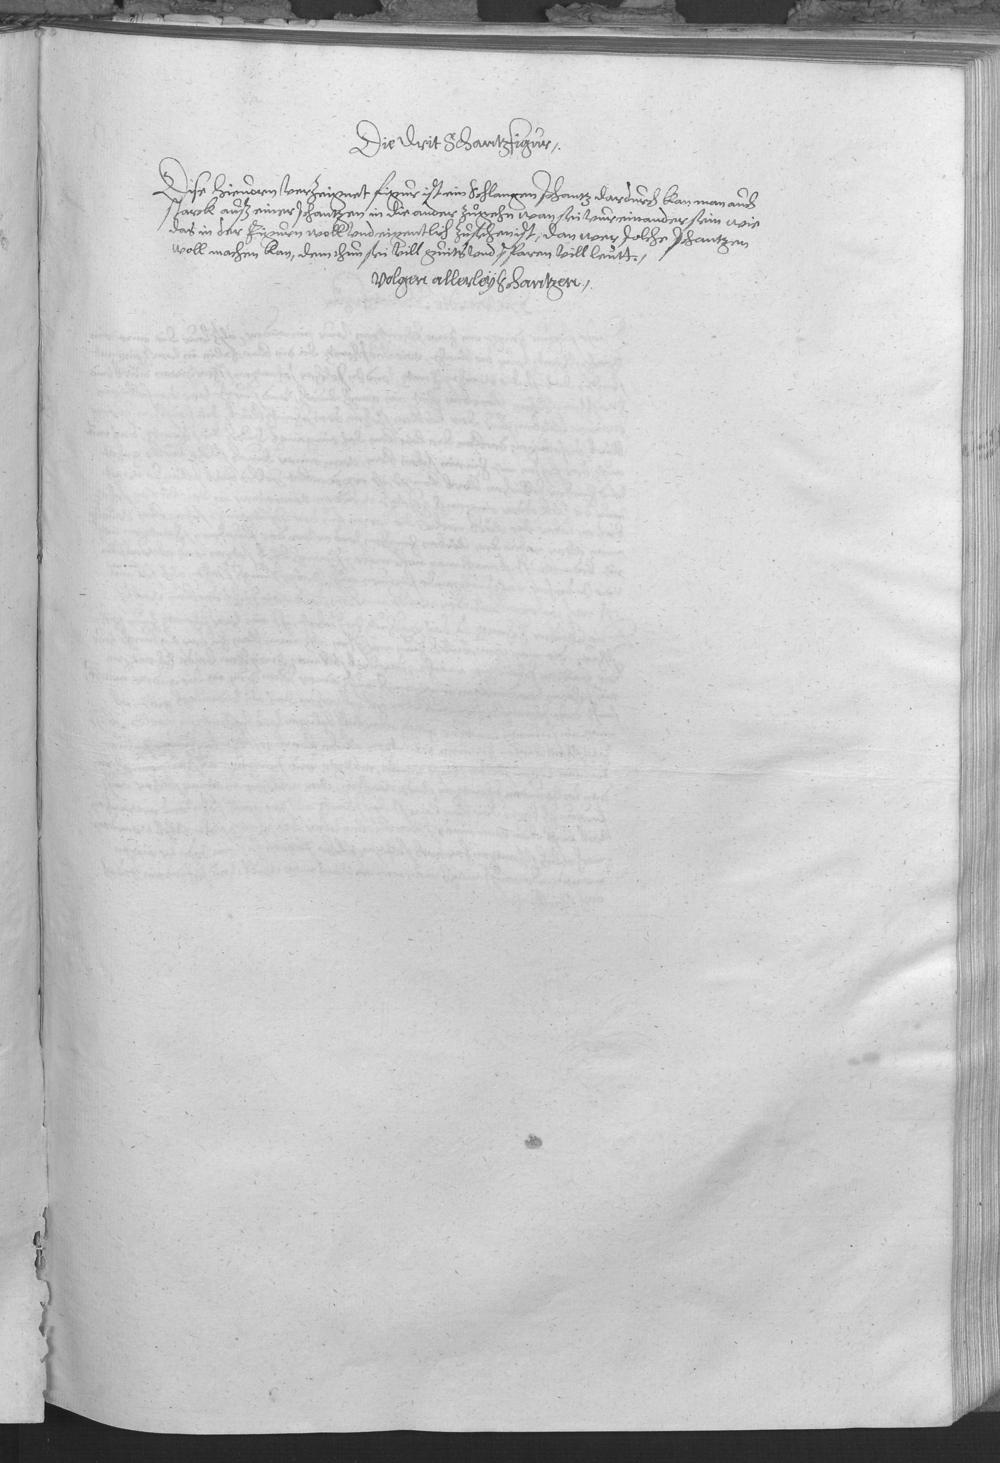 Die drit Schantzfigur /.
Dise hieuorn verzeignet figur ist ein Schlangen schantz dardurch kan man auch
starck auß einer schantzen in die ander ziehen wan sei vur einander sein wie
das in der figuren woll vnd eigentlich zusehen ist, dan wer solche schantzen
woll machen kan, dem thun sei vill guits vnd sparen vill leutt. /
Volgen allerley Schantzen /.